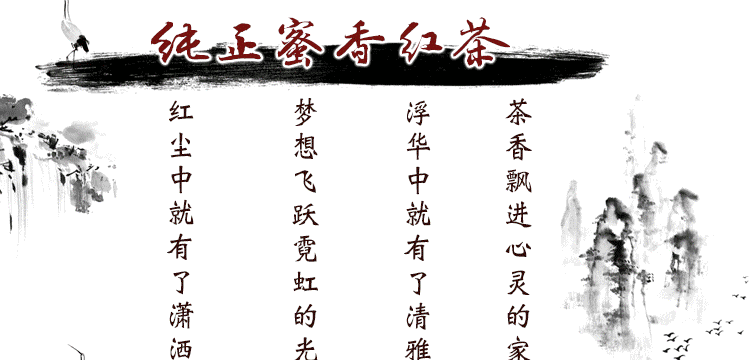 纯正蜜香红茶
茶香飘进心灵的家
浮华中就有了清雅
梦想飞跃霓虹的光
红尘中就有了潇洒